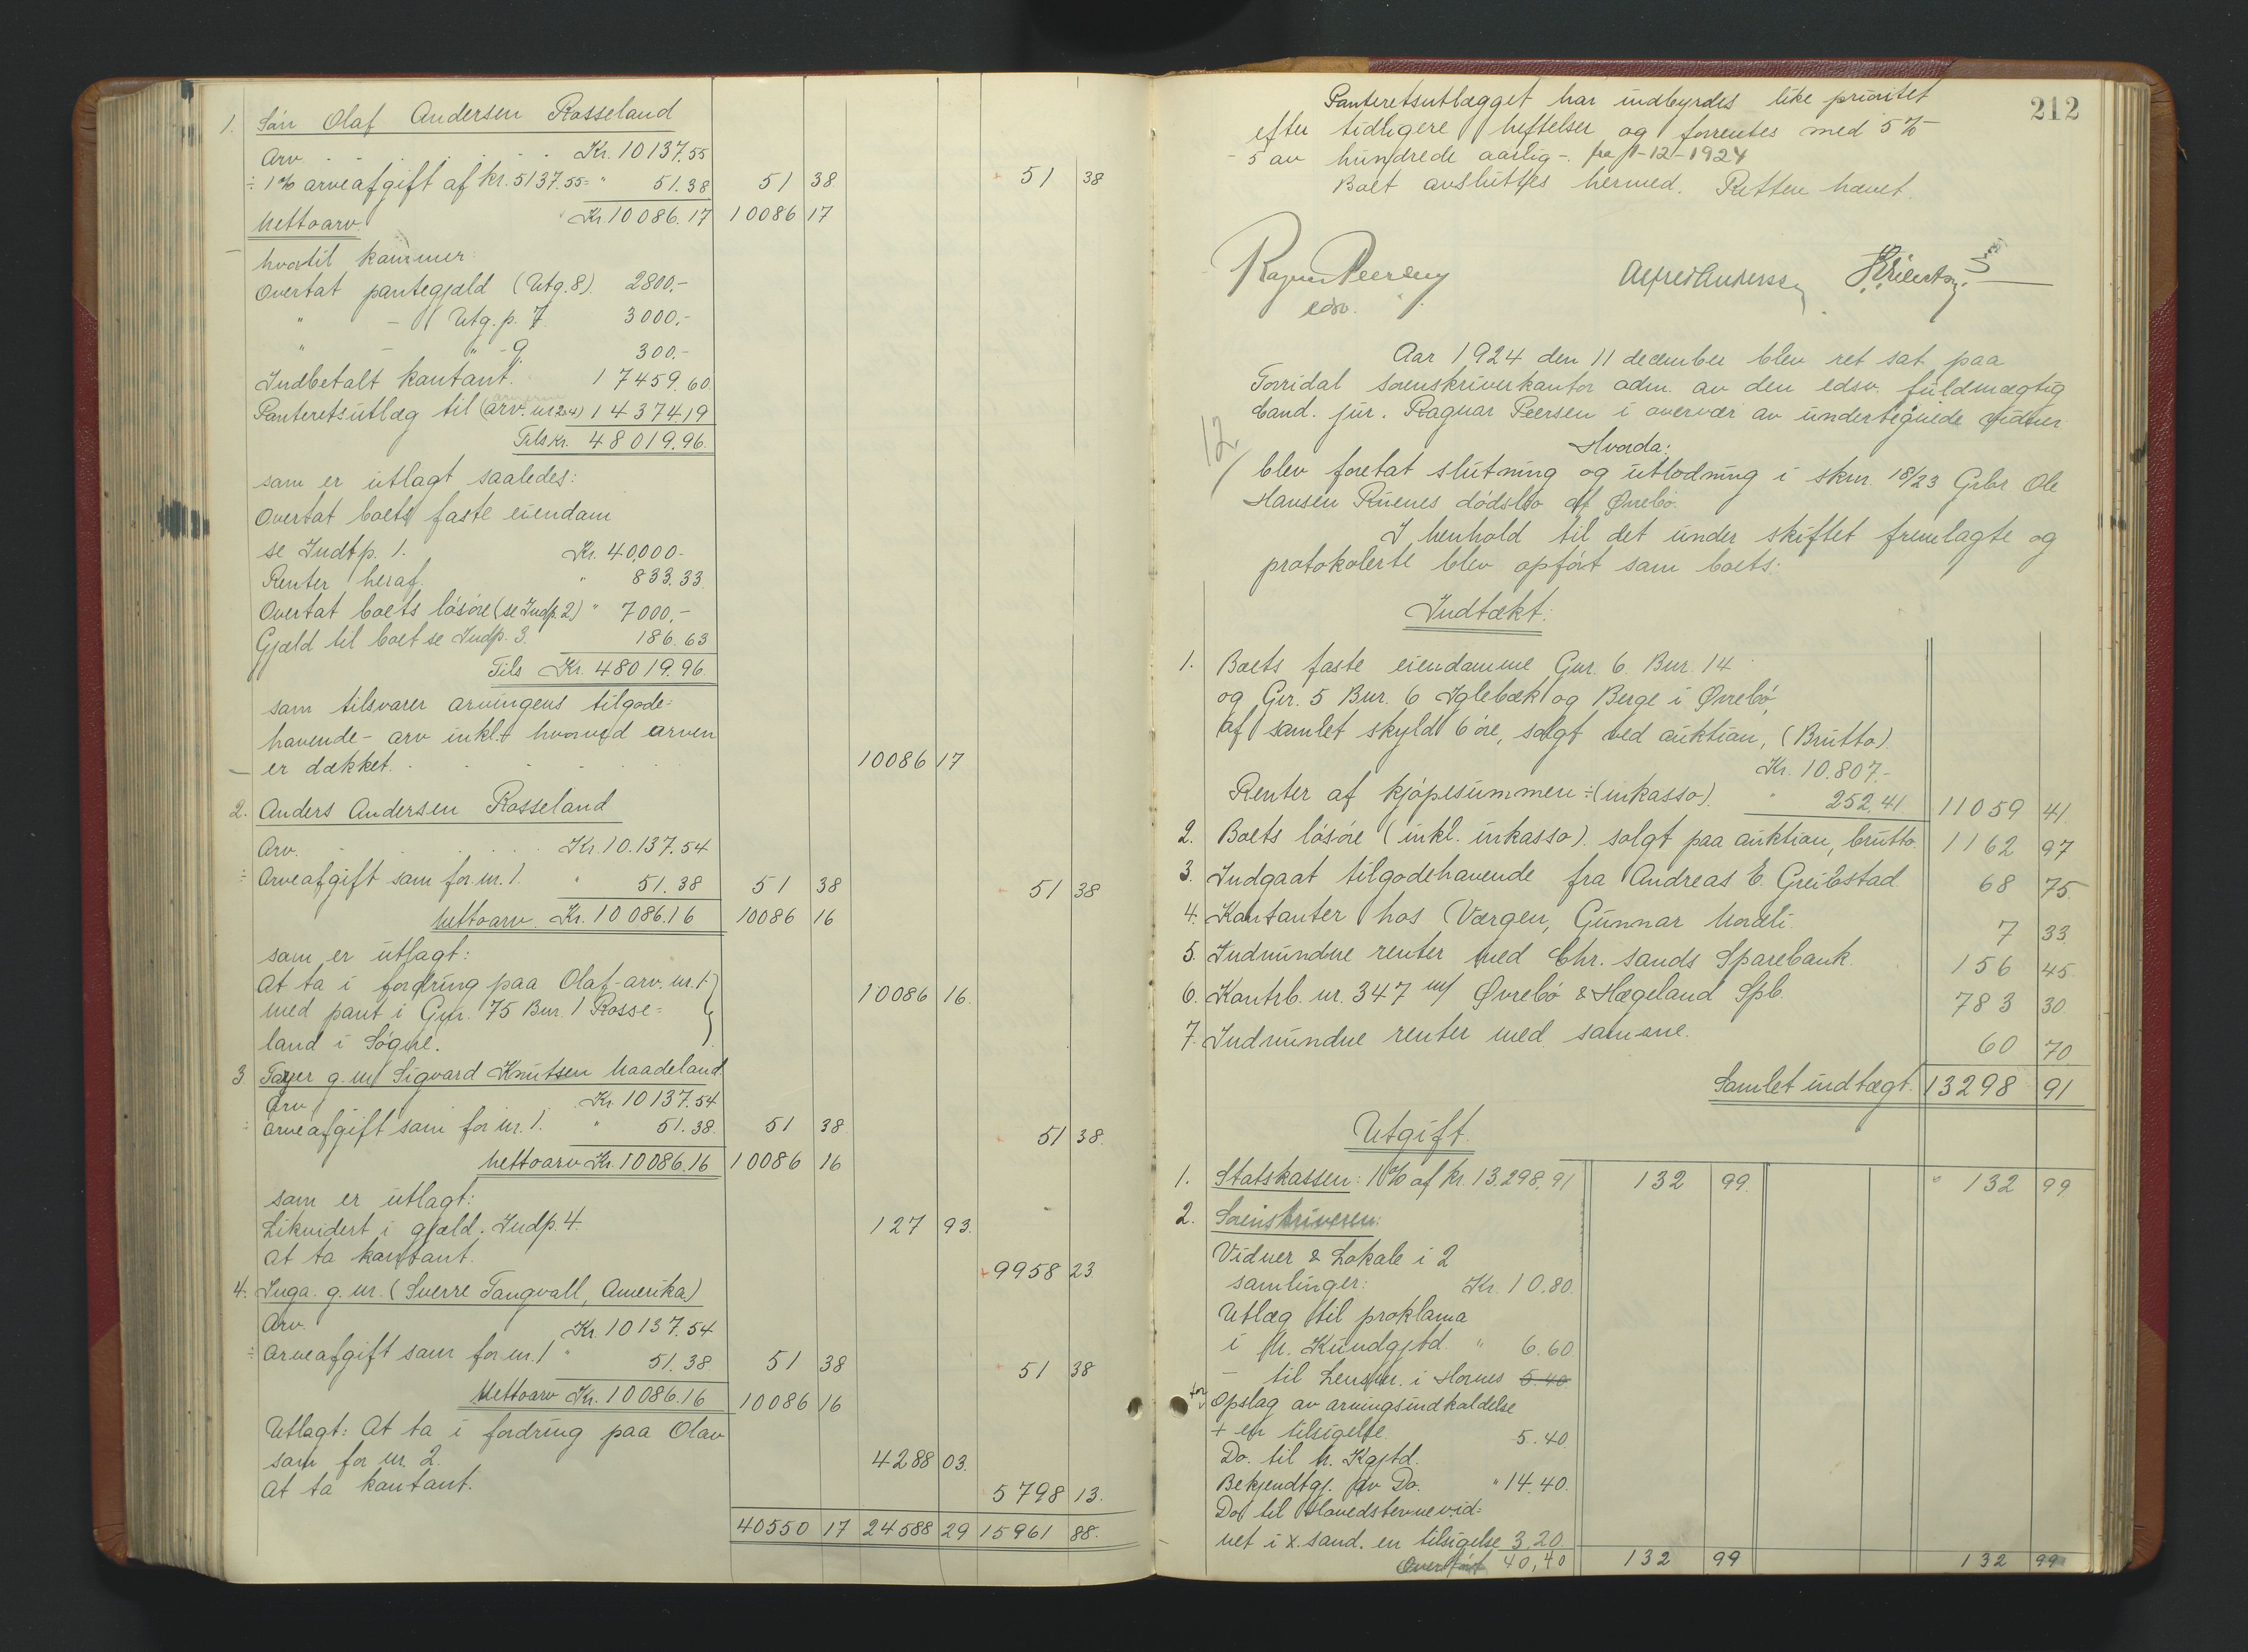 1. Søn Olaf Andersen Rosseland
Arv. Kr. 10137.55
÷ 1% arveafgift af kr. 5137.55 = " 51.38 51 38 51 38
Nettoarv. Kr. 10086.17 10086 17
hvortil kommer:
Overtat pantegjæld (Utg. 8) 2800.-
" - ( Utg. p. 7. 3000.-
" - " - 9. 300.-
Indbetalt kontant. 17459.60
Panteretsutlæg til (arv. nr 2 4) 14374.19
Tils kr. 48019.96.
som er utlagt saaledes:
Overtat boets faste eiendom
se Indtp. 1. Kr. 40,000-
Renter heraf. " 833.33
Overtat boets løsøre (se Indp. 2) " 7000.-
Gjæld til boet se Indp. 3. 186.63
Tils Kr. 48019.96
som tilsvarer arvingens tilgode=
havende - arv inkl.- hvorved arven
er dækket. 10086 17
2. Anders Andersen Rosseland
Arv. Kr. 10.137.54
÷ Arveafgift som for nr. 1. " 51.38 51 38 51 38
Nettoarv. Kr. 10086.16 10086 16
som er utlagt:
At ta i fordring paa Olaf - arv. nr. 1-
med pant i Gnr. 75 Bnr. 1 Rosse= 10086 16.
land i Søgne.
3 g. m/ Sigvard Knutsen Naadeland
Arv Kr. 10137.54
÷ arveafgift som for nr. 1. " 51.38. 51 38 51 38.
Nettoarv Kr. 10086.16 10086 16
som er utlagt:
Likvidert i gjæld. Indp. 4. 127 93.
At ta kontant. +9958 23
4. Inga. g. m. (Sverre Tangvall, Amerika)
Arv. Kr. 10137.54
÷ Arveafgift som for nr. 1 " 51.38 51 38 51 38
Nettoarv Kr. 10086.16 10086 16
Utlagt: At ta i fordring paa Olav
som for nr. 2. 4288 03.
At ta kontant. 5798 13.
40550 17 24588 29 15961 88.
212
Panteretsutlægget har indbyrdes like prioritet
efter tidligere heftelser og forrentes med 5%
- 5 av hundrede aarlig -. fra 11-12-1924
Boet avsluttes hermed. Retten hævet.
Ragnar Peersen Alfred Andersen
edsv.
Aar 1924 den 11 december blev ret sat paa
Torridal sorenskriverkontor adm. av den edsv. fuldmægtig
cand. jur. Ragnar Peersen i overvær av undertegnede vidner.
Hvorda:
12/ blev foretat slutning og utlodning i skm. 18/23 Grbr Ole
Hansen Ruenes dødsbo af Øvrebø.
I henhold til det under skiftet fremlagte og
protokolerte blev opført som boets:
Indtækt:
1. Boets faste eiendomme Gnr. 6. Bnr. 14
og Gr. 5 Bnr. 6 Iglebæk og Berge i Øvrebø,
af samlet skyld 6 øre, solgt ved auktion, (Brutto).
Kr. 10.807.-
Renter af kjøpesummen ÷ (inkasso). " 252.41 11059 41.
2. Boets løsøre (inkl. inkasso). solgt paa auktion, brutto. 1162 97
3. Indgaat tilgodehavende fra Andreas E. Greibstad 68 75.
4. Kontanter hos Værgen, Gunnar Nordli. 7 33.
5. Indvundne renter med Chr. sands Sparebank. 156 45.
6. Kontrb. nr. 347 m/ Øvrebø & Hægeland Spb. 783 30.
7. Indvundne renter med samme. 60 70
Samlet indtægt. 13298 91
Utgift.
1. Statskassen: 1% af kr. 13.298.91 132 99. " 132 99
2. Sorenskriveren:
Vidner & Lokale i 2
samlinger: Kr. 10.80.
Utlæg til proklama
i N. Kundgjtd. " 6.60.
- til Lensm. i Hornes 5.40
for opslag av arvingsindkaldelse
+ en tilsigelse. 5.40.
Do. til N. Kgjtd.
Bekjendtgj. av Do. " 14.40.
Do. til Hovedstevnevid=
net i x. sand. en tilsigelse 3.20.
Overført 40,40 132 99 132 99